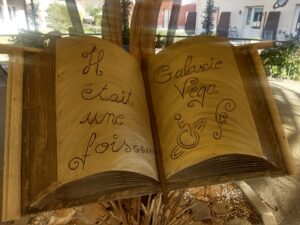 Il
était
une
fois....
Galaxie
Véga